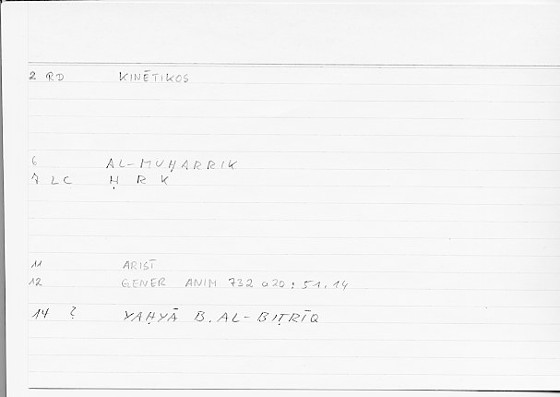 2 RD KINĒTIKOS
6 AL-MUḤARRIK
7 LC Ḥ R K
11 ARIST
12 GENER ANIM 732 a20 : 51.14
14 ? YAḤYĀ B. AL-BIṬRĪQ